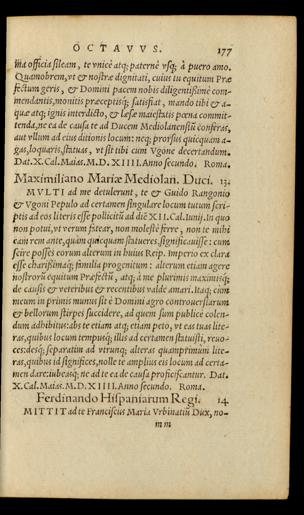 OCTAVVS. 177
ma officia sileam, te vnicè atq; paternè vsq; à puero amo.
Quamobrem, vt & nostræ dignitati, cuius tu equitum Præ
fectum geris, & Domini pacem nobis diligentissimè com
mendantis, monitis præceptisq; satisfiat, mando tibi & a-
quæ atq; ignis interdicto, & læsæ maiestatis pœna committ-
tenda, ne ea de causa te ad Ducem Mediolanensiū conferas,
aut vllum ad eius ditionis locum: neq; prorsus quicquam a-
gas, loquaris, statuas, vt sit tibi cum Vgone decertandum.
Dat. X. Cal. Maias. M. D. XIIII. Anno secundo. Roma.
Maximiliano Mariæ Mediolan. Duci. 13.
MVLTI ad me detulerunt, te & Guido Rangonio
& Vgoni Pepulo ad certamen singulare locum tutum scri-
ptis ad eos literis esse pollicitū ad diē XII. Cal. Iunij. In quo
non potui, vt verum fatear, non molestè ferre, non te mihi
eam rem ante, quàm quicquam statueres, significauisse: cum
scire posses eorum alterum in huius Reip. Imperio ex clara
esse charissimaq; familia progenitum: alterum etiam agere
nostrorū equitum Præfectū, atq; à me plurimi maximisq;
de causis & veteribus & recentibus valde amari. Itaq; cùm
mecum in primis munus sit è Domini agro controuersiarum
& bellorum stirpes succidere, ad quem sum publicè colen-
dum adhibitus: abs te etiam atq; etiam peto, vt eas tuas lite-
ras, quibus locum tempusq; illis ad certamen statuisti, reuo-
ces: desq; separatim ad vtrunq; alteras quamprimùm lite-
ras, quibus id significes, nolle te amplius eis locum ad certa-
men dare: iubeasq; ne ad te ea de causa proficiscantur. Dat.
X. Cal. Maias. M. D. XIIII. Anno secundo. Roma.
Ferdinando Hispaniarum Regi. 14
MITTIT ad te Franciscus Maria Vrbinatiū Dux, no-
mm